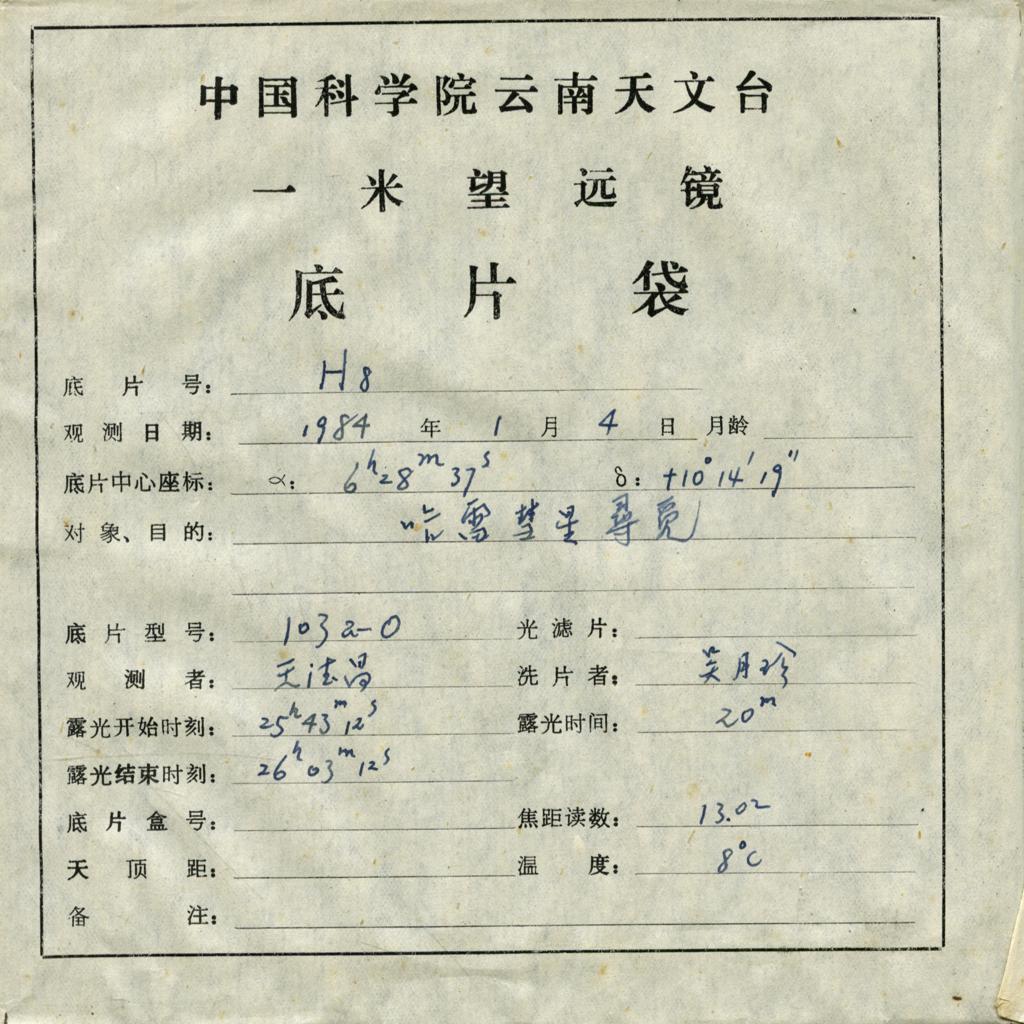 中国科学院云南天文台
一米望远镜
底片袋
底片号: H8
观测日期: 1984 年 1 月 4 日 月龄
底片中心座标: α: 6h28m37s δ: +10°14′19″
对象、目的: 哈雷彗星尋覓
底片型号: 103a-O 光滤片:
观测者: 洗片者: 吴月珍
露光开始时刻: 25h43m12s 露光时间: 20m
露光结束时刻: 26h03m12s
底片盒号: 焦距读数: 13.02
天顶距: 温度: 8°C
备注: